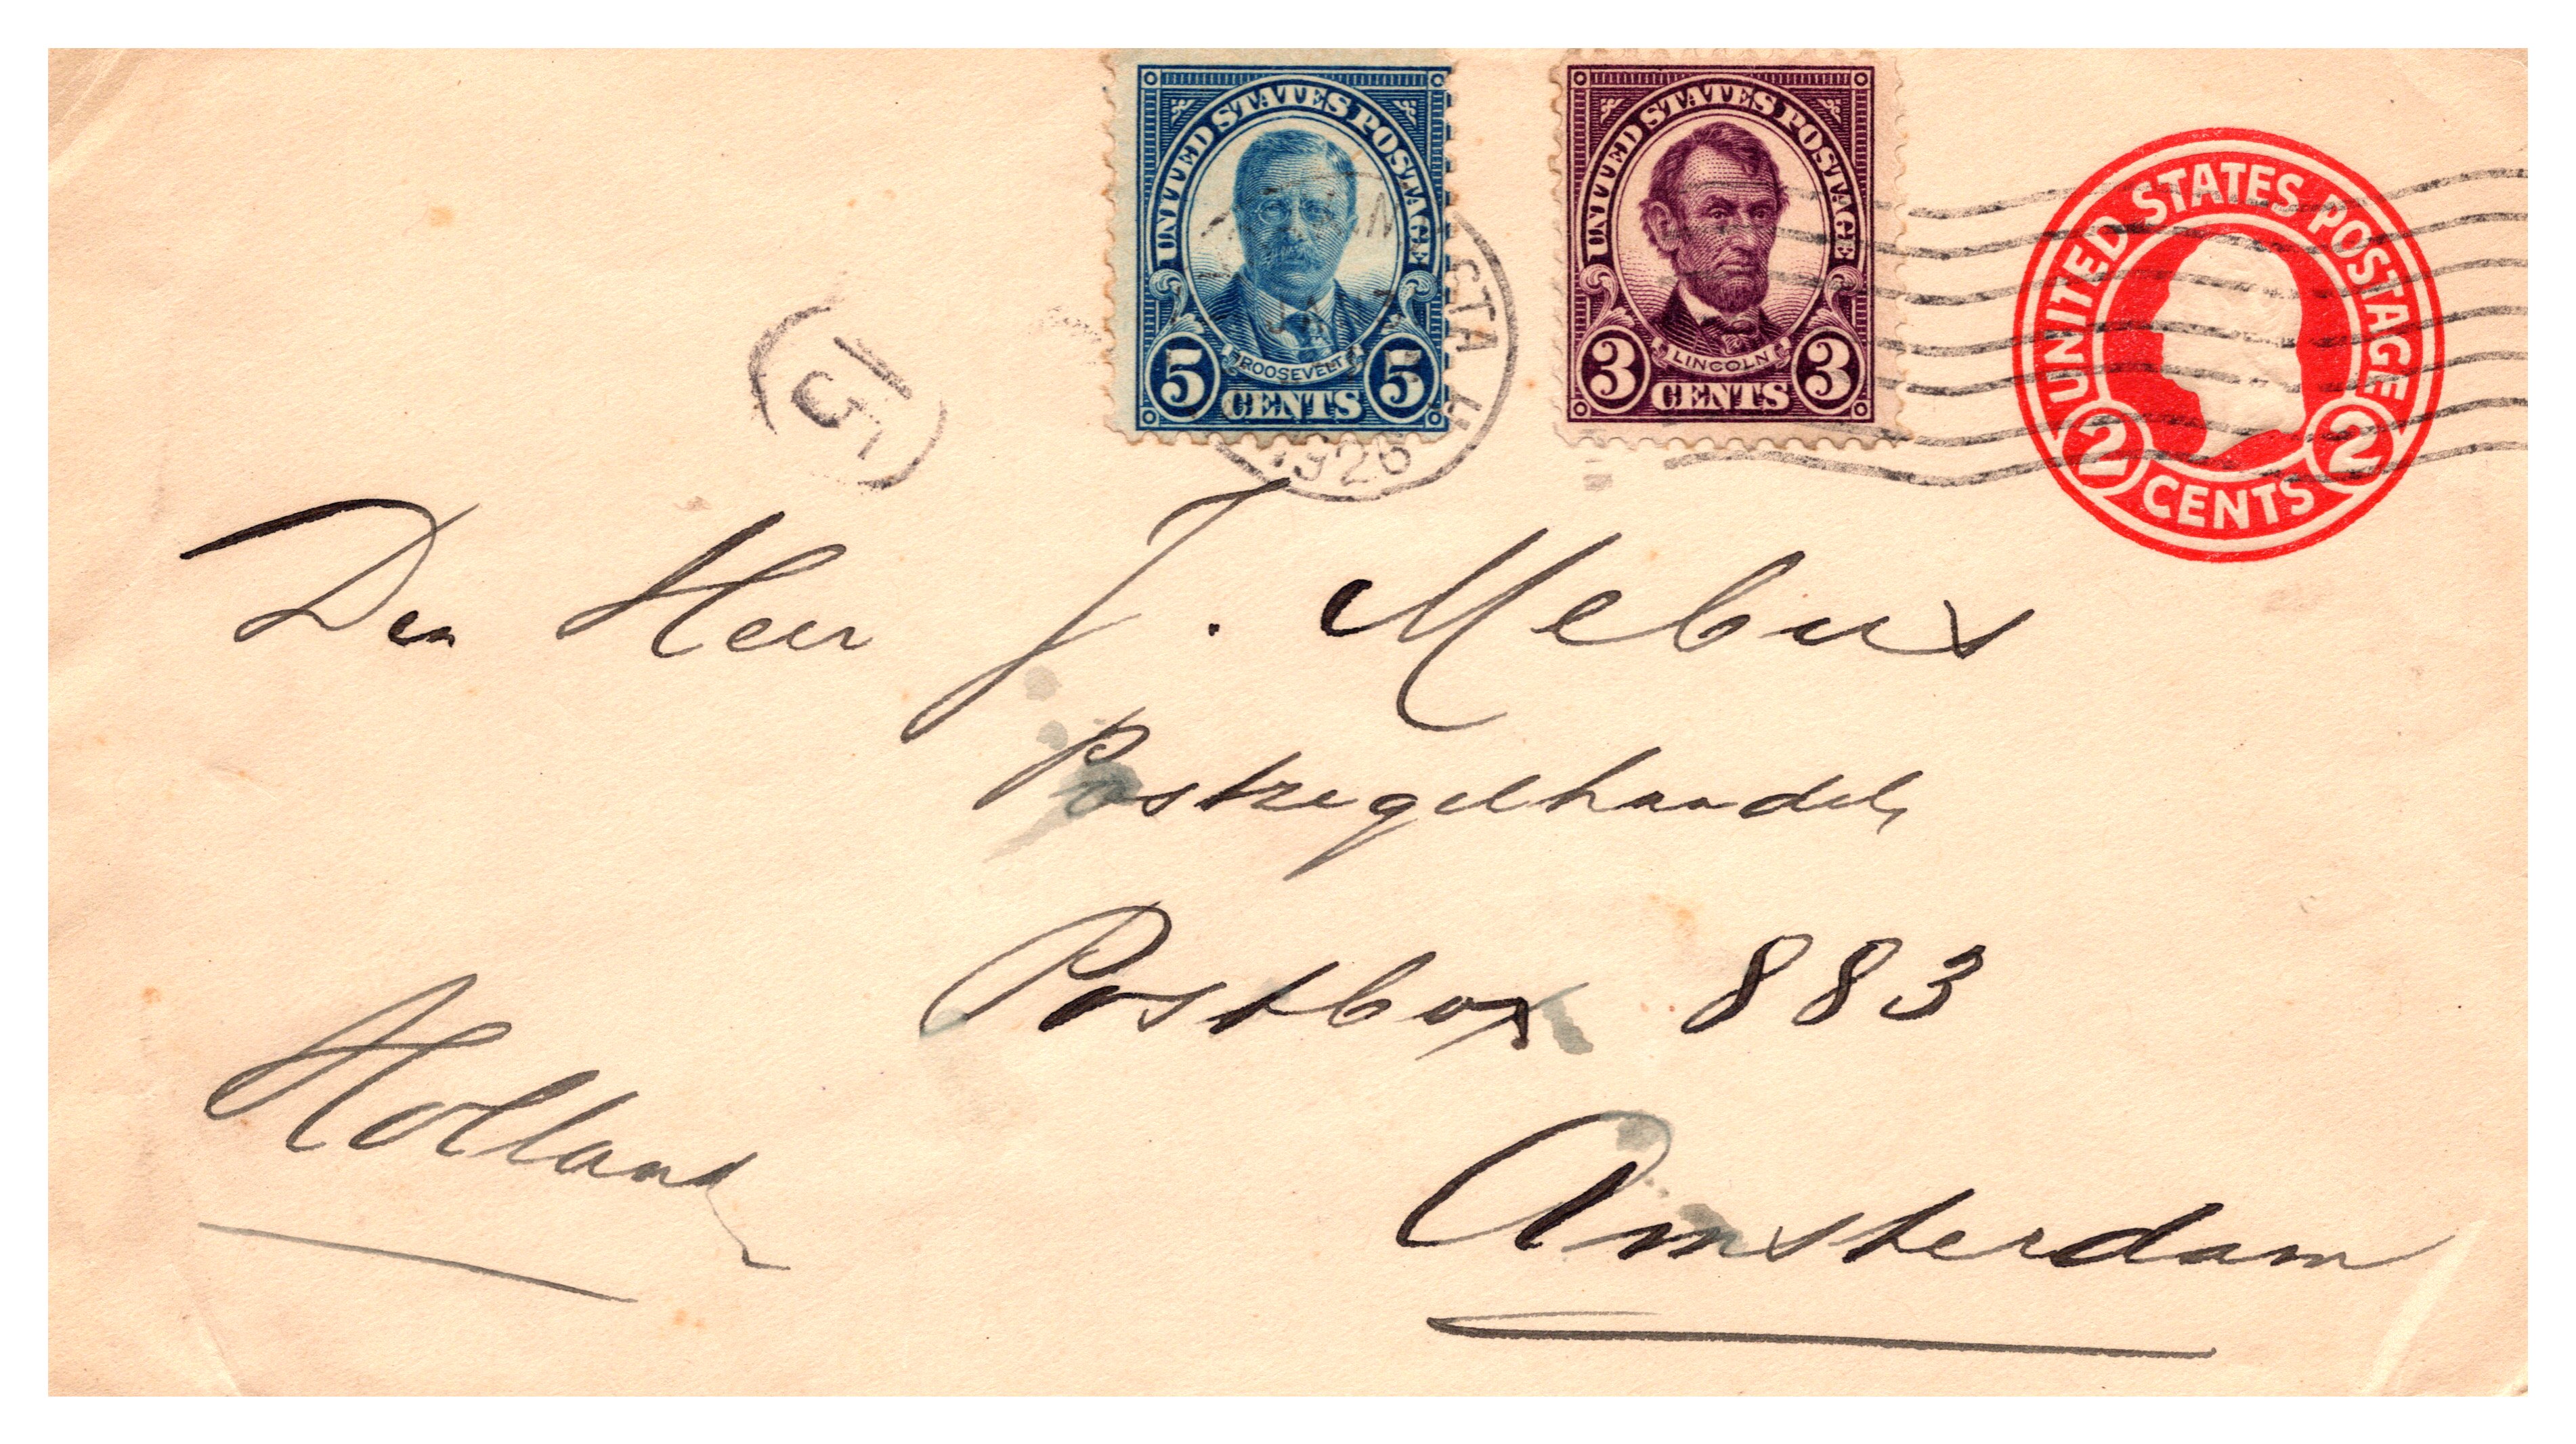 UNITED STATES POSTAGE
ROOSEVELT
5 CENTS 5
UNITED STATES POSTAGE
LINCOLN
3 CENTS 3
UNITED STATES POSTAGE
2 CENTS 2
STA
1926
5
Den Heer J. Mebus
Postzegelhandel,
Postbox 883
Amsterdam
Holland